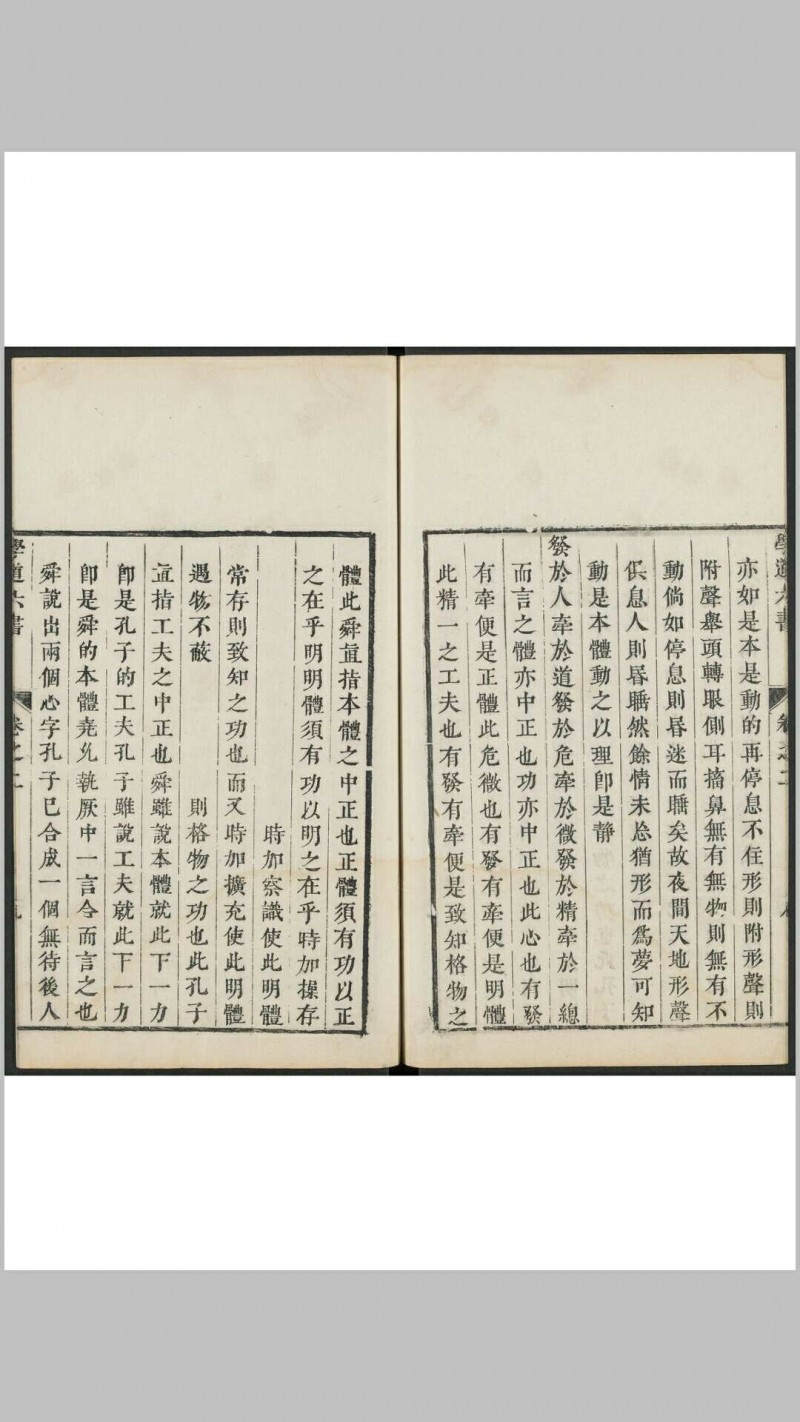 學道六書 卷之二
亦如是本是動的再停息不住形則附形聲則
附聲舉頭轉眼側耳搐鼻無有無物則無有不
動倘如停息則昬迷而睡矣故夜間天地形聲
俱息人則昬睡然餘情未忘猶形而爲夢可知
動是本體動之以理卽是靜
發於人牽於道發於危牽於微發於精牽於一總
而言之體亦中正也功亦中正也此心也有發
有牽便是正體此危微也有發有牽便是明體
此精一之工夫也有發有牽便是致知格物之
體此舜直指本體之中正也正體須有功以正
之在乎明明體須有功以明之在乎時加操存
時加察識使此明體
常存則致知之功也而又時加擴充使此明體
遇物不蔽
則格物之功也此孔子
直指工夫之中正也舜雖說本體就此下一力
卽是孔子的工夫孔子雖說工夫就此下一力
卽是舜的本體堯允執厥中一言合而言之也
舜說出兩個心字孔子已合成一個無待後人
學道六書 卷之二 九